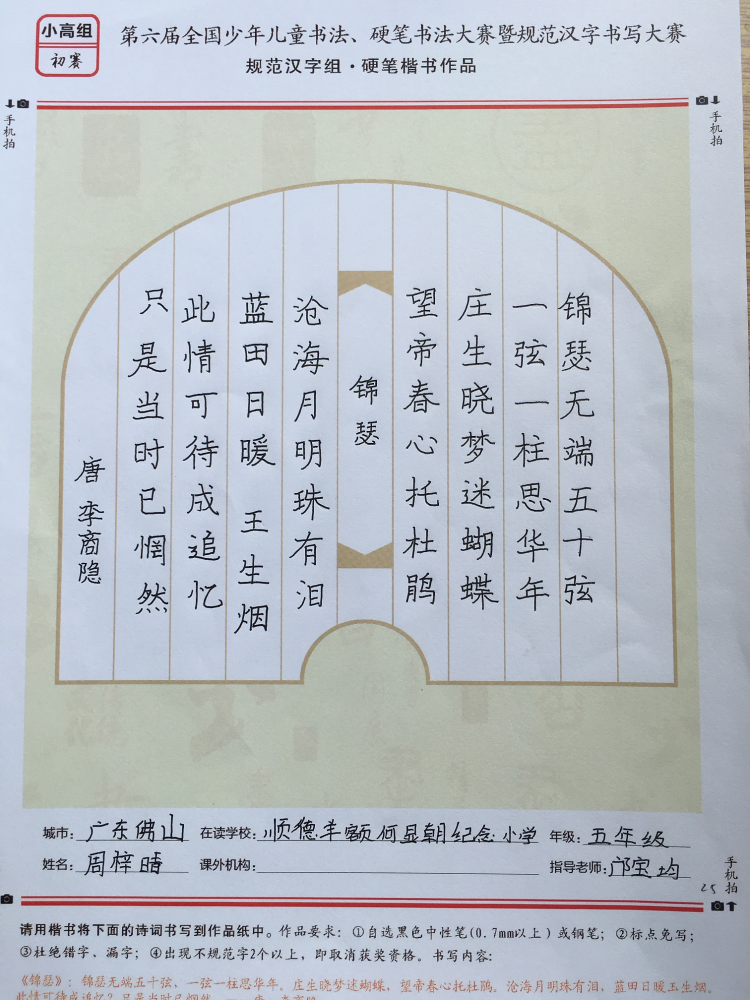 小高组
初赛
第六届全国少年儿童书法、硬笔书法大赛暨规范汉字书写大赛
规范汉字组·硬笔楷书作品
手机拍
手机拍
锦瑟无端五十弦
一弦一柱思华年
庄生晓梦迷蝴蝶
望帝春心托杜鹃
锦瑟
沧海月明珠有泪
蓝田日暖王生烟
此情可待成追忆
只是当时已惘然
唐李商隐
城市：广东佛山 在读学校：顺德羊额何显朝纪念小学 年级：五年级
姓名：周梓晴 课外机构： 指导老师：邝宝均
25
手机拍
请用楷书将下面的诗词书写到作品纸中。作品要求：①自选黑色中性笔(0.7mm以上)或钢笔；②标点免写；
③杜绝错字、漏字；④出现不规范字2个以上，即取消获奖资格。书写内容：
《锦瑟》：锦瑟无端五十弦，一弦一柱思华年。庄生晓梦迷蝴蝶，望帝春心托杜鹃。沧海月明珠有泪，蓝田日暖玉生烟。
此情可待成追忆？只是当时已惘然